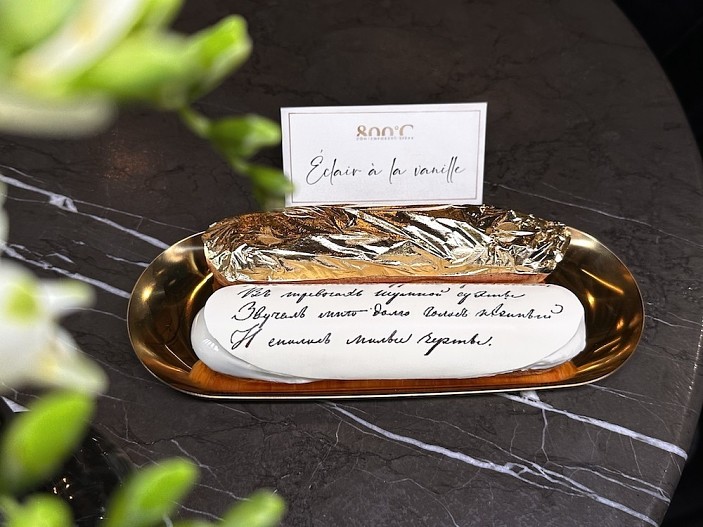 800°C
Éclair à la vanille
Въ тревогахъ шумной суеты
Звучалъ мнѣ долго голосъ нѣжный
И снились милыя черты.